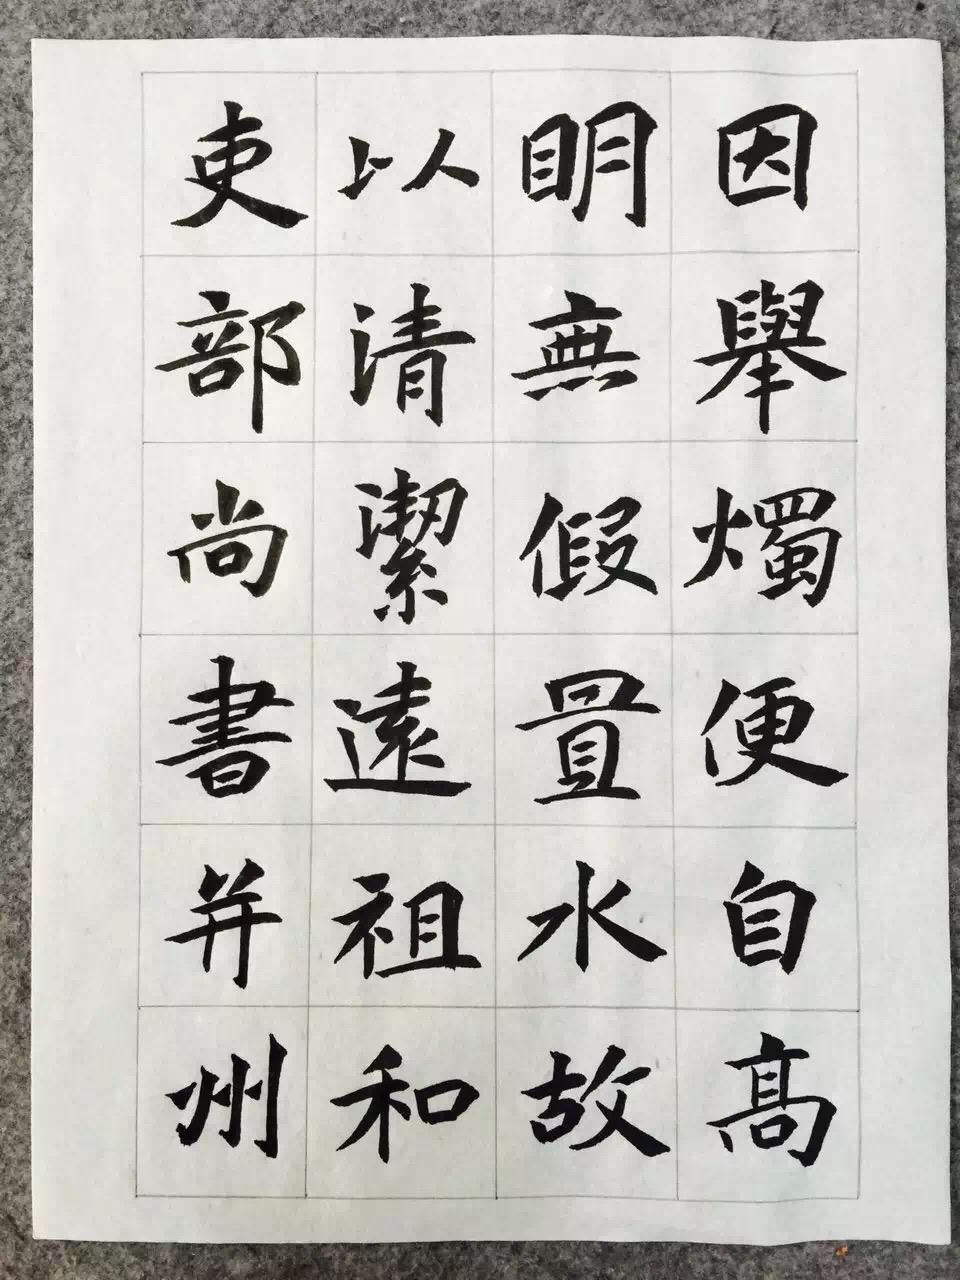 因舉燭便自高
明無假置水故
以清潔遠祖和
吏部尚書并州